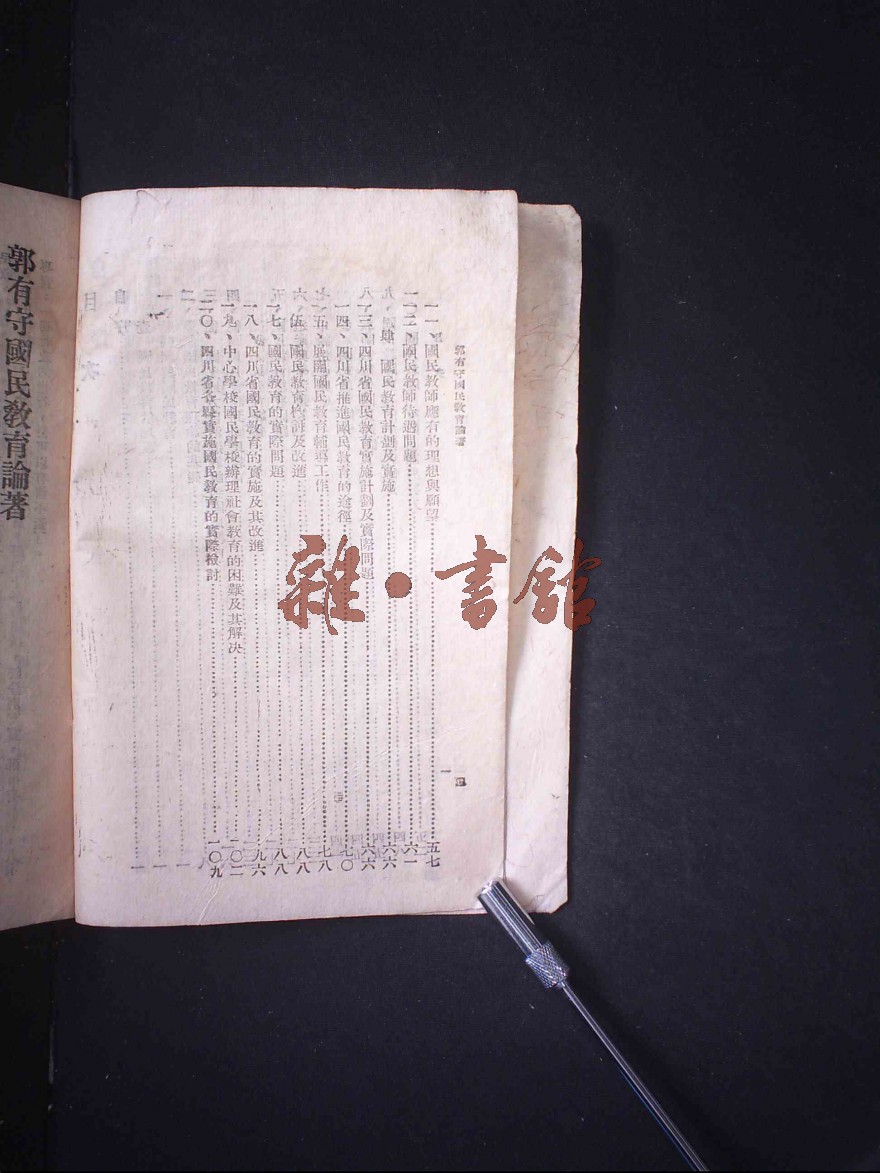 郭有守國民教育論著
一一、國民教師應有的理想與願望……五七
一二、國民教師待遇問題……六一
肆、國民教育計劃及實施……六六
一三、四川省國民教育實施計劃及實際問題……六六
一四、四川省推進國民教育的途徑……七〇
一五、展開國民教育輔導工作……七八
伍、國民教育檢討及改進……八八
一七、國民教育的實際問題……八八
一八、四川省國民教育的實施及其改進……九六
一九、中心學校國民學校辦理社會教育的困難及其解決……一〇二
二〇、四川省各縣實施國民教育的實際檢討……一〇九
郭有守國民教育論著
雜·書館